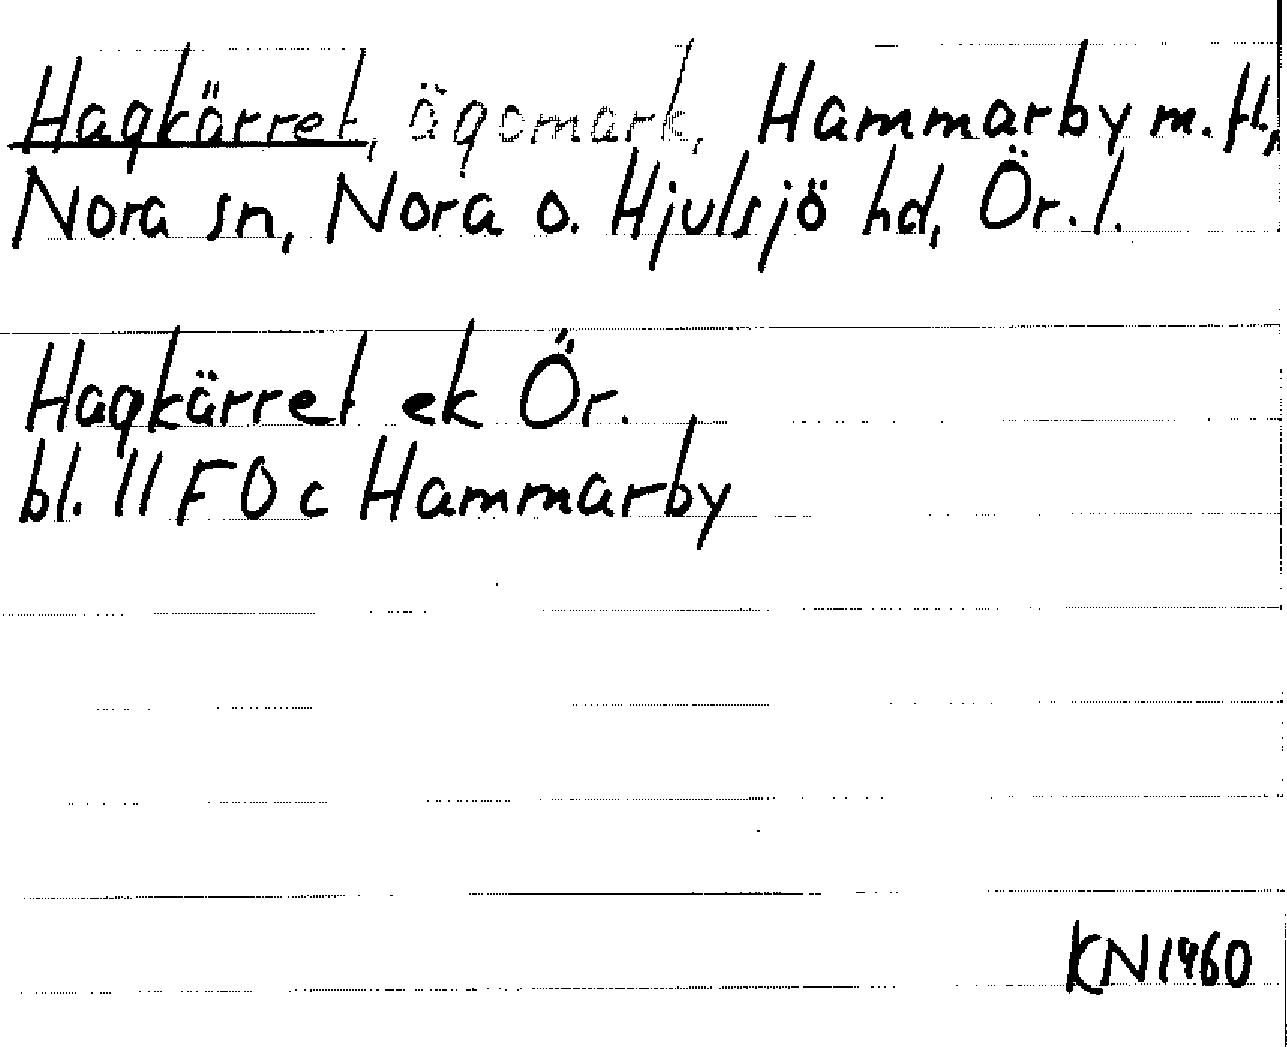 Hagkärret, ägomark, Hammarby m. fl.,
Nora sn, Nora o. Hjulsjö hd, Ör. l.
Hagkärret ek Ör.
bl. 11 F 0 c Hammarby
KN 1960